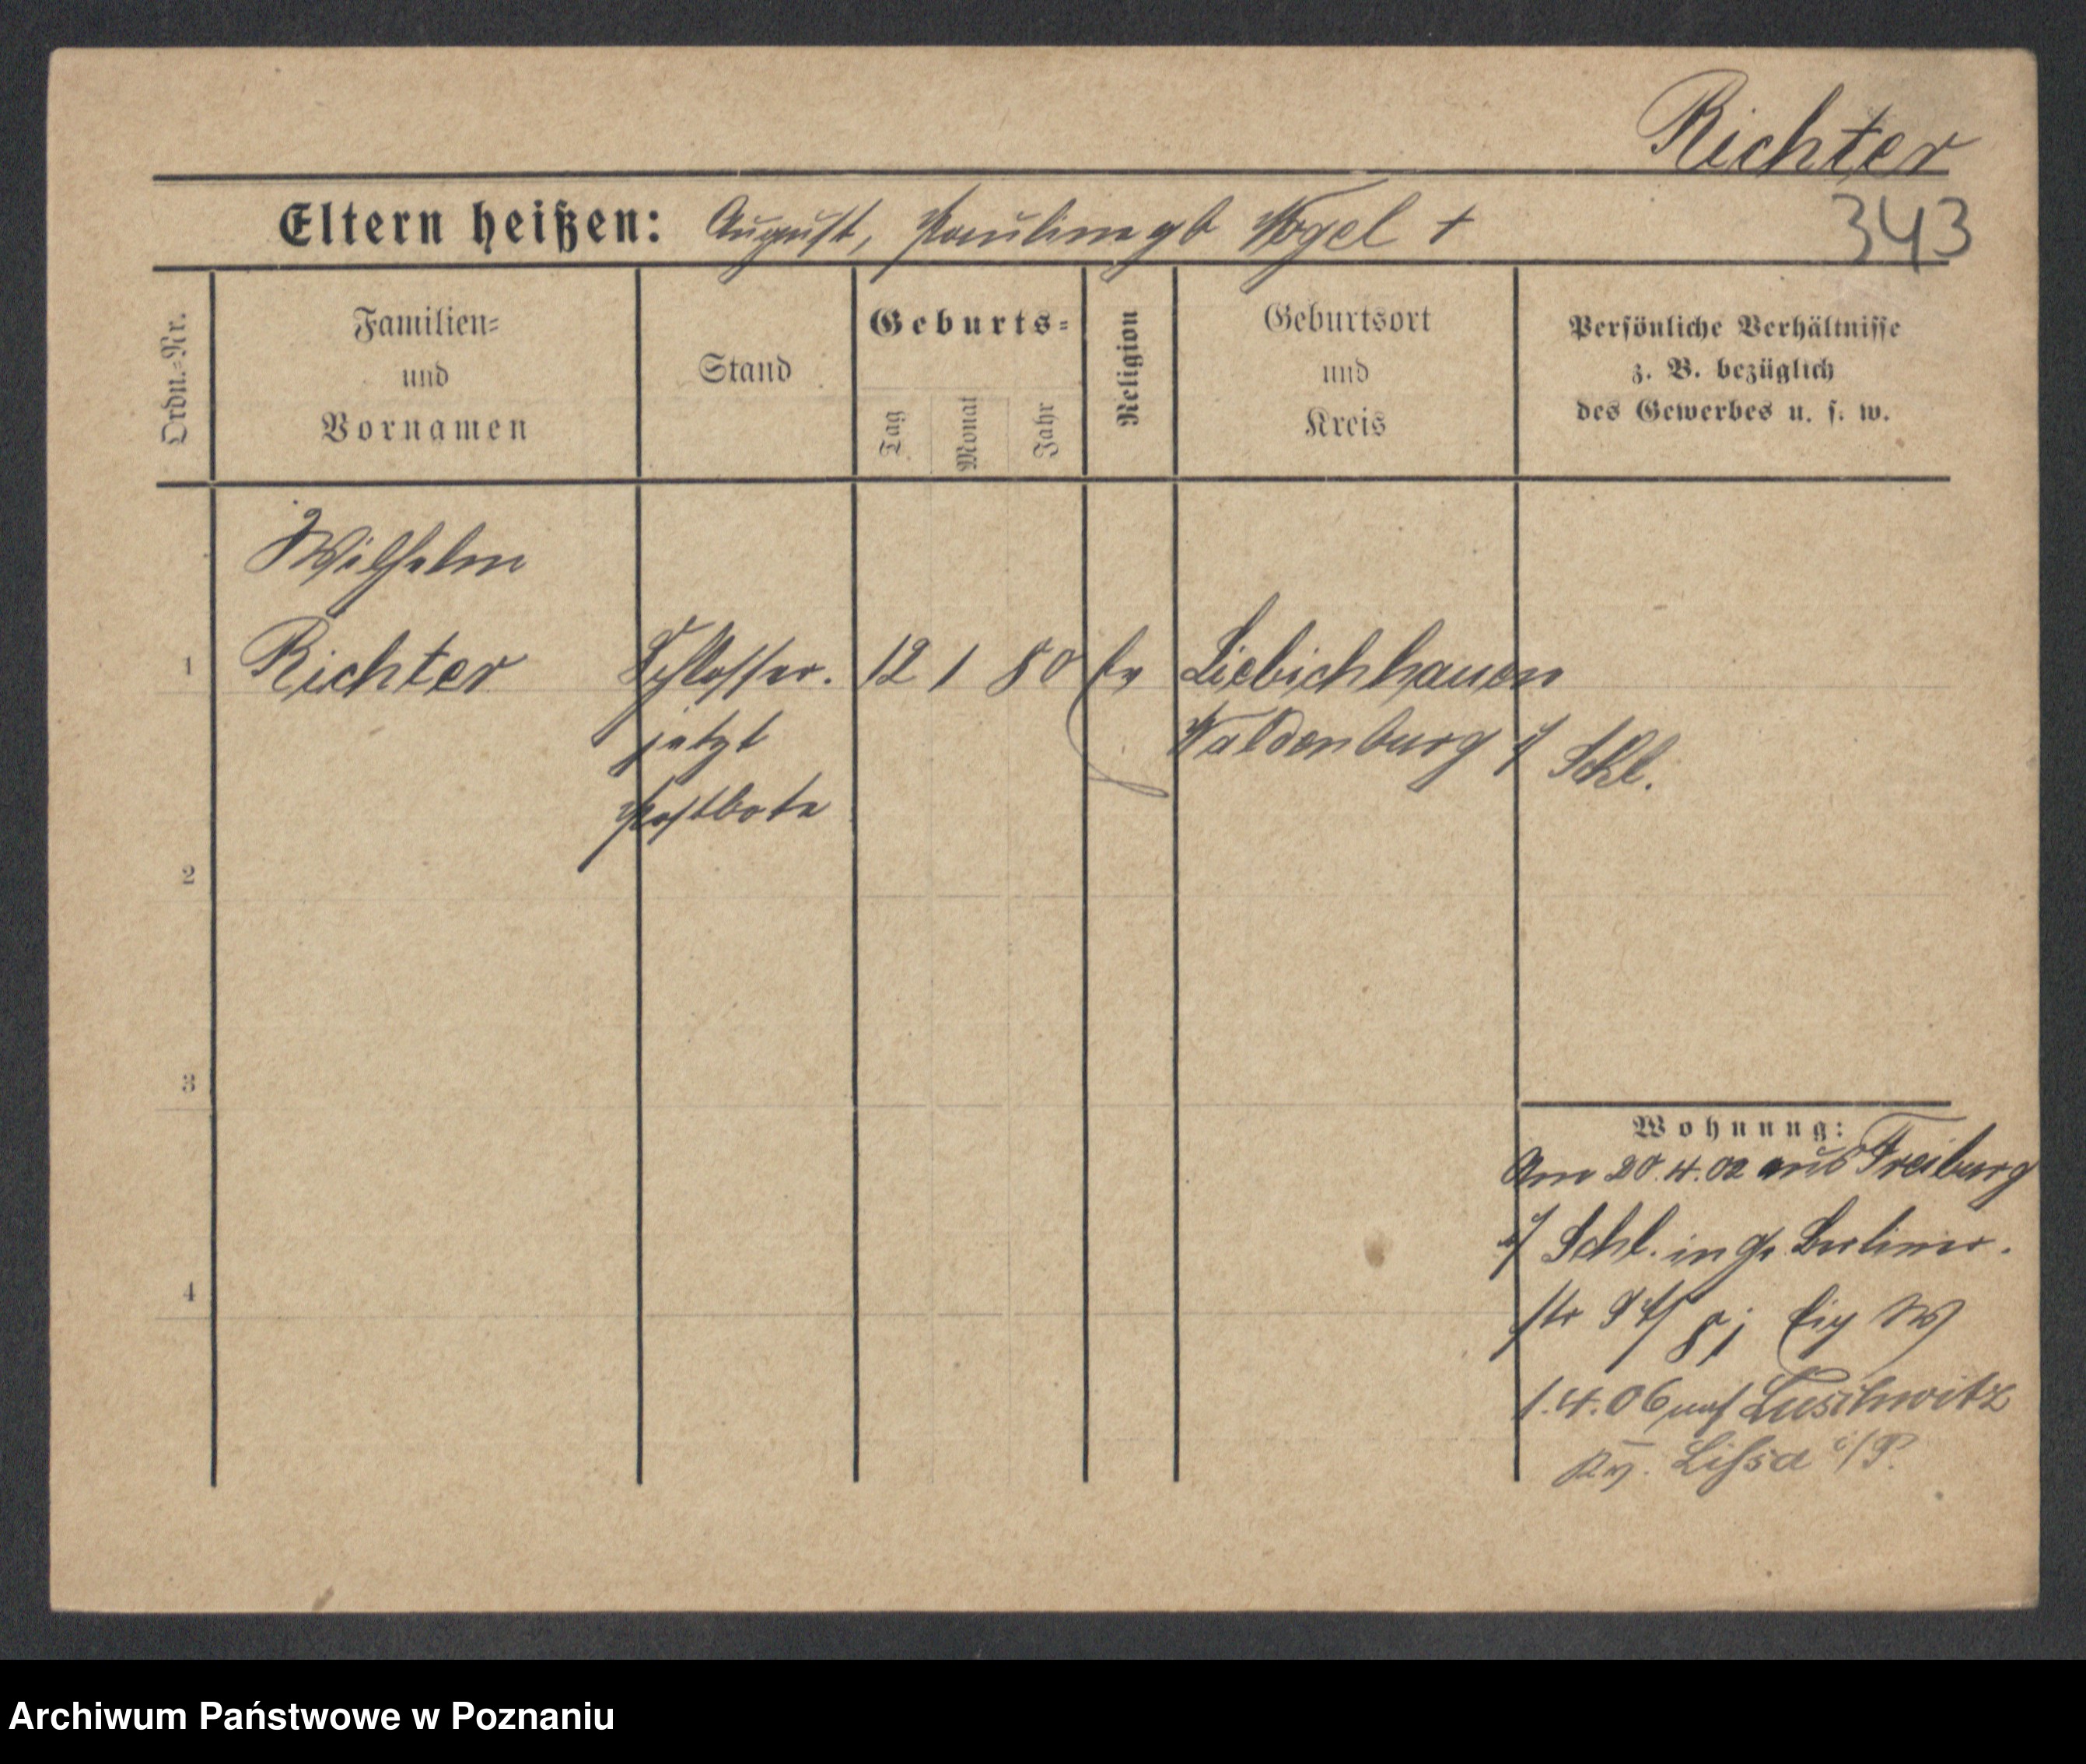 Richter
343
Eltern heißen: August, Pauline gb Vogel +
Ordn.=Nr.
Familien=
und
Vornamen
Stand
Geburts=
Tag
Monat
Jahr
Religion
Geburtsort
und
Kreis
Persönliche Verhältnisse
z. B. bezüglich
des Gewerbes u. s. w.
Wilhelm
1 Richter Schlosser. 12 1 80 Ev Liebichhauen
jetzt Waldenburg i/ Schl.
Postbote
2
3
4
Wohnung:
Am 20.4.02 aus Freiburg
i/ Schl. in gr. Berliner.
str bei Eig W
1.4.06 nach Luschwitz
Kr. Lissa i/P.
Archiwum Państwowe w Poznaniu